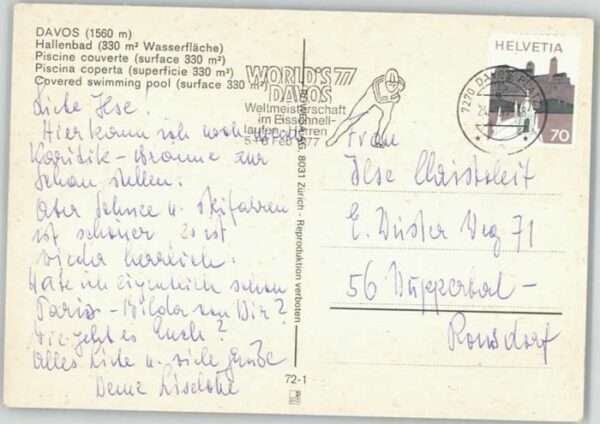 DAVOS (1560 m)
Hallenbad (330 m² Wasserfläche)
Piscine couverte (surface 330 m²)
Piscina coperta (superficie 330 m²)
Covered swimming pool (surface 330 m²)
WORLD'S 77
DAVOS
Weltmeisterschaft
im Eisschnell-
laufen Herren
Feb 1977
HELVETIA
70
7270 DAVOS
Liebe Ilse!
Hier kann ich noch meine
Karibik-Bräune zur
Schau stellen.
Aber Schnee u. skifahren
ist schöner. Es ist
wieder herrlich.
Habe ich eigentlich schon
Paris-Bilder von Dir?
Wie geht es Euch?
Alles Liebe u. viele Grüße
Deine Liselotte
AG, 8031 Zürich - Reproduktion verboten
72-1
Frau
Ilse
E. Weg 71
56 Wuppertal-
Ronsdorf